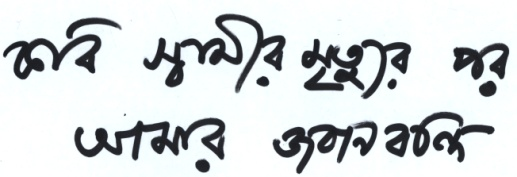 কবি স্বামীর মৃত্যুর পর
আমার জবানবন্দি